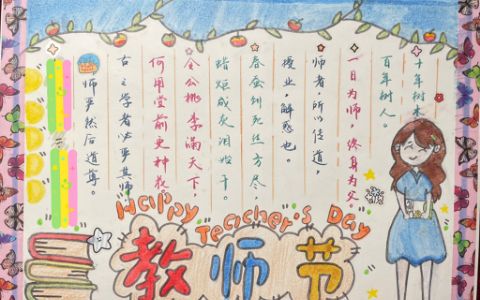 十年树木,
百年树人。
一日为师,终身为父
师者,所以传道,
授业,解惑也。
春蚕到死丝方尽,
蜡炬成灰泪始干。
令公桃李满天下,
何用堂前更种花。
古之学者必严其师,
师严然后道尊。
Happy Teacher's Day
教师节